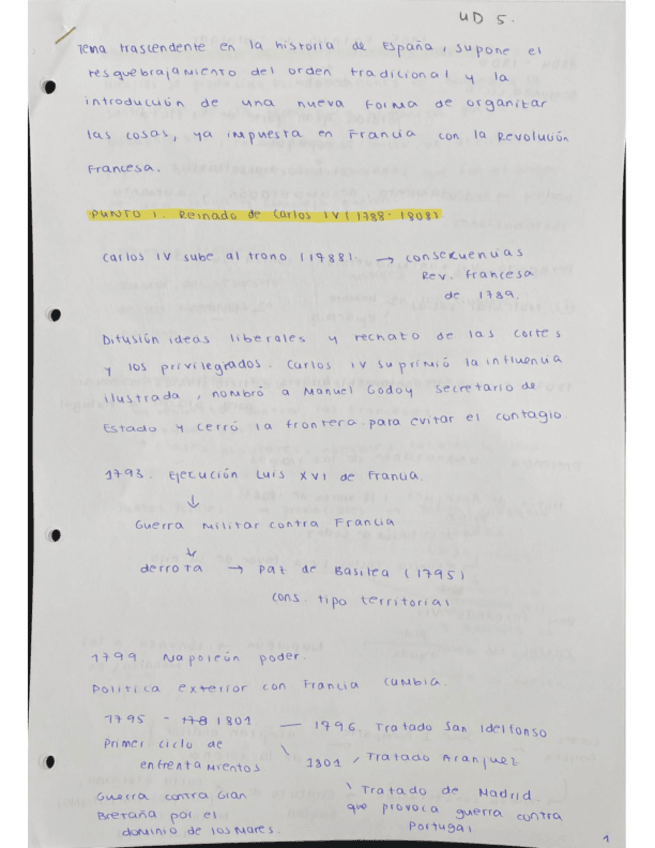 UD 5.
Tema trascendente en la historia de España, supone el
resquebrajamiento del orden tradicional y la
introducción de una nueva forma de organizar
las cosas, ya impuesta en Francia con la Revolución
Francesa.
PUNTO 1. Reinado de Carlos IV (1788-1808)
Carlos IV sube al trono (1788). → consecuencias
Rev. francesa
de 1789.
Difusión ideas liberales y rechazo de las cortes
y los privilegiados. Carlos IV suprimió la influencia
ilustrada, nombró a Manuel Godoy secretario de
Estado y cerró la frontera para evitar el contagio
1793. Ejecución Luis XVI de Francia.
↓
Guerra Militar contra Francia
↓
derrota → Paz de Basilea (1795)
cons. tipo territorial
1799 Napoleón poder.
Política exterior con Francia cambia.
1795 - 1801 — 1796. Tratado San Idelfonso
Primer ciclo de
enfrentamientos. \ 1801, Tratado Aranjuez
Guerra contra Gran \ Tratado de Madrid.
Bretaña por el que provoca guerra contra
dominio de los mares. Portugal
1